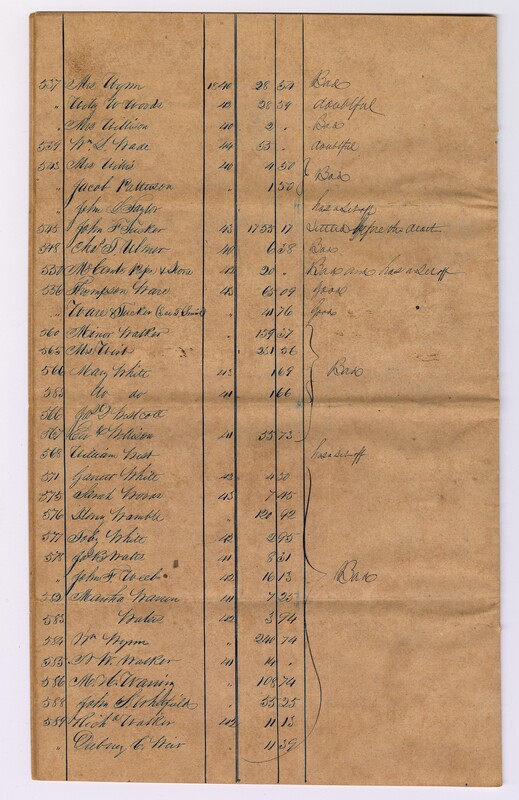 537 Mrs. Wynn 1840 28 54 Bad
" Woods 42 28 59 doubtful
" Mrs Willison 40 2 " Bad
539 Wm. S. Wade 44 55 " doubtful
543 Mrs Willis 40 4 50 Bad
" Jacob Pattison " 1 50
" John S Taylor has a set off
545 John F Tucker 43 1755 17 Settled before the death
548 Chs. T. Ulmer 40 6 38 Bad
551 & Sons 42 20 " Bad and has a set off
556 Thompson Ware 43 65 09 Good
" Ware & Tucker 41 76 Good
560 Minor Walker " 139 37
565 Mrs West " 251 56
566 Mary White 43 1 69 Bad
583 Do do 41 1 66
566 Westcott
567 Willison 41 55 73
568 William West has a set off
571 Garrett White 42 4 30
575 Sarah 43 7 45
576 Womble " 120 42
577 Toby White 42 2 95
578 Waters 41 8 31
" John F Webb 42 16 13 Bad
582 Martha Warren 41 7 25
583 Waters 42 3 94
584 Wm Wynn " 240 74
585 W. Walker 41 14 "
586 M. Waring " 108 74
588 John S. " 55 25
589 Richd Walker 42 11 13
" Dabney C. Weir 11 39